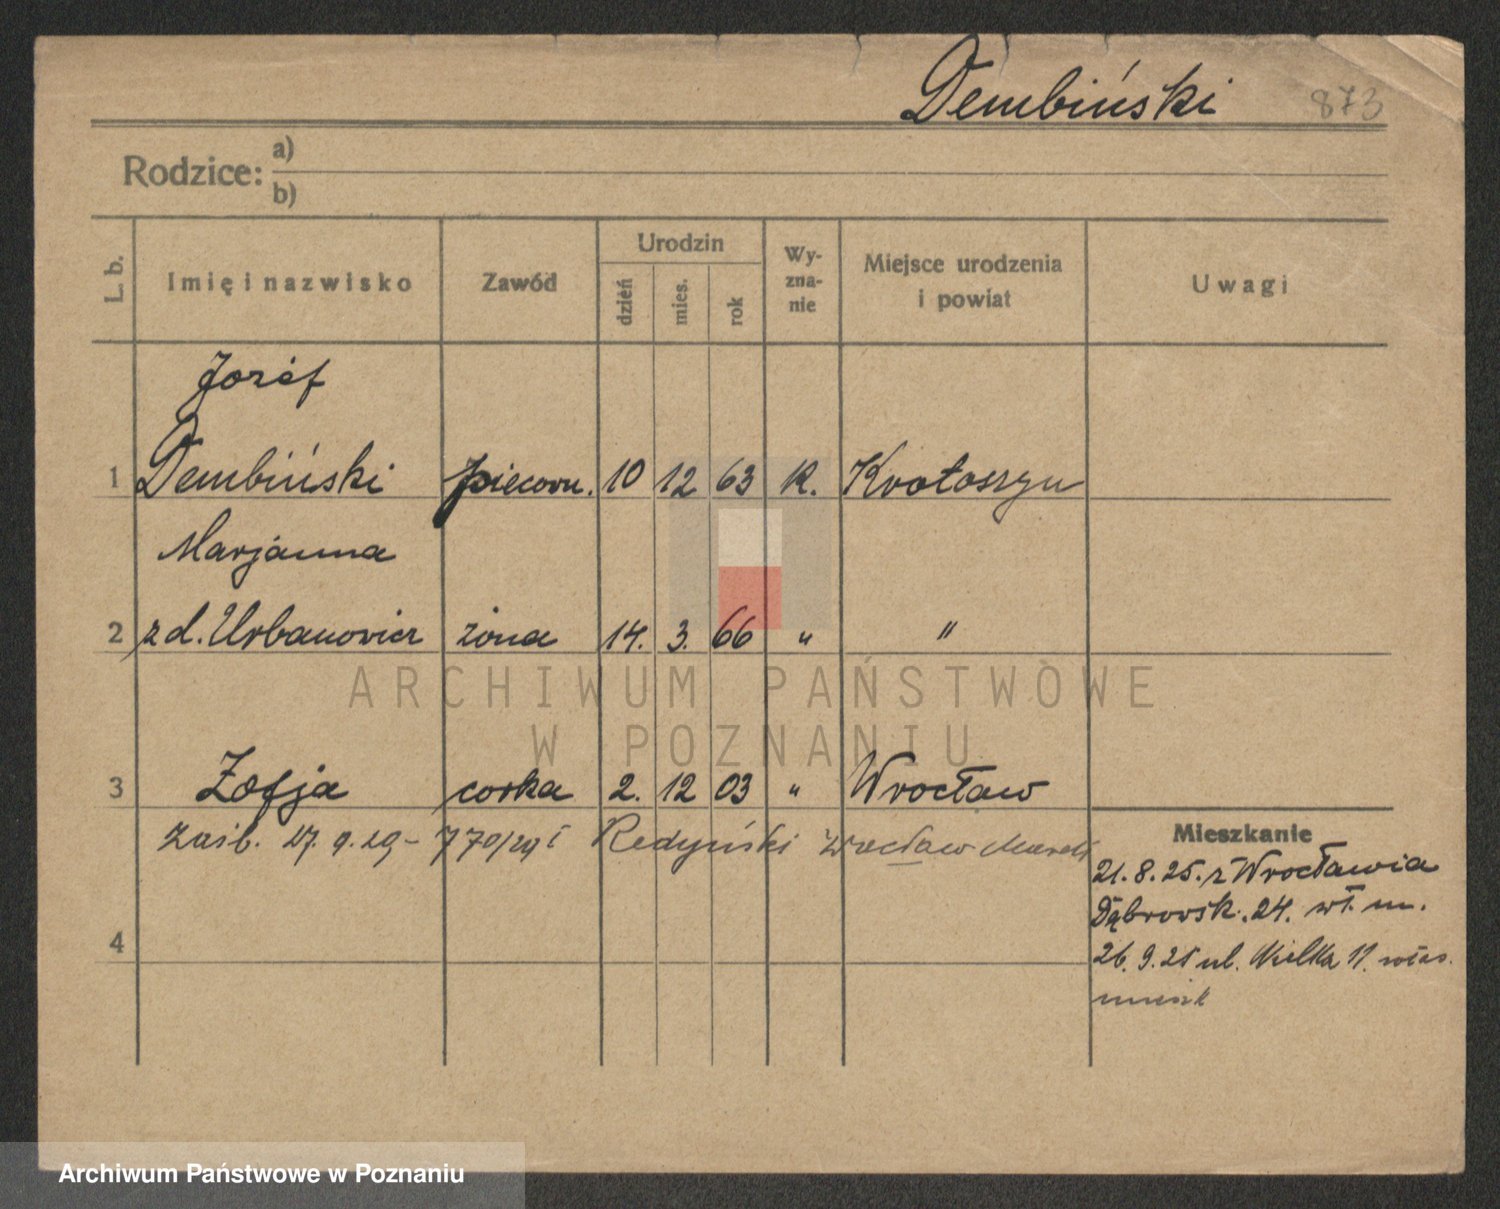 Dembiński 873
Rodzice: a)
b)
L. b. Imię i nazwisko Zawód Urodzin dzień mies. rok Wy-zna-nie Miejsce urodzenia i powiat Uwagi
Józef
1 Dembiński piecown. 10 12 63 R. Krotoszyn
Marjanna
2 z d. Urbanowicz żona 14. 3. 66 " "
ARCHIWUM PAŃSTWOWE
W POZNANIU
3 Zofja corka 2. 12 03 " Wrocław
Zaśb. 17. 9. 29 - 770/29 Redyński Wrocław
Mieszkanie
21. 8. 25. z Wrocławia
Dąbrowsk. 24. wł. m.
4
26. 9. 25 ul. Wielka 11. włas.
miesz
Archiwum Państwowe w Poznaniu